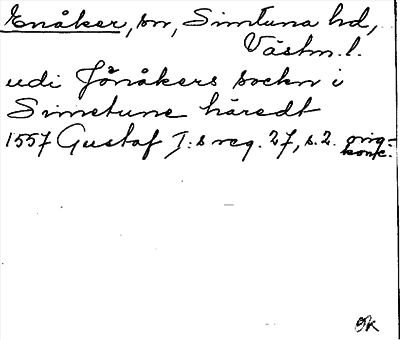 Enåker, sn, Simtuna hd,
Västm. l.
udi Jönåkers sockn i
Simetune häredt
1557 Gustaf I:s reg. 27, s. 2. orig.-
konc.